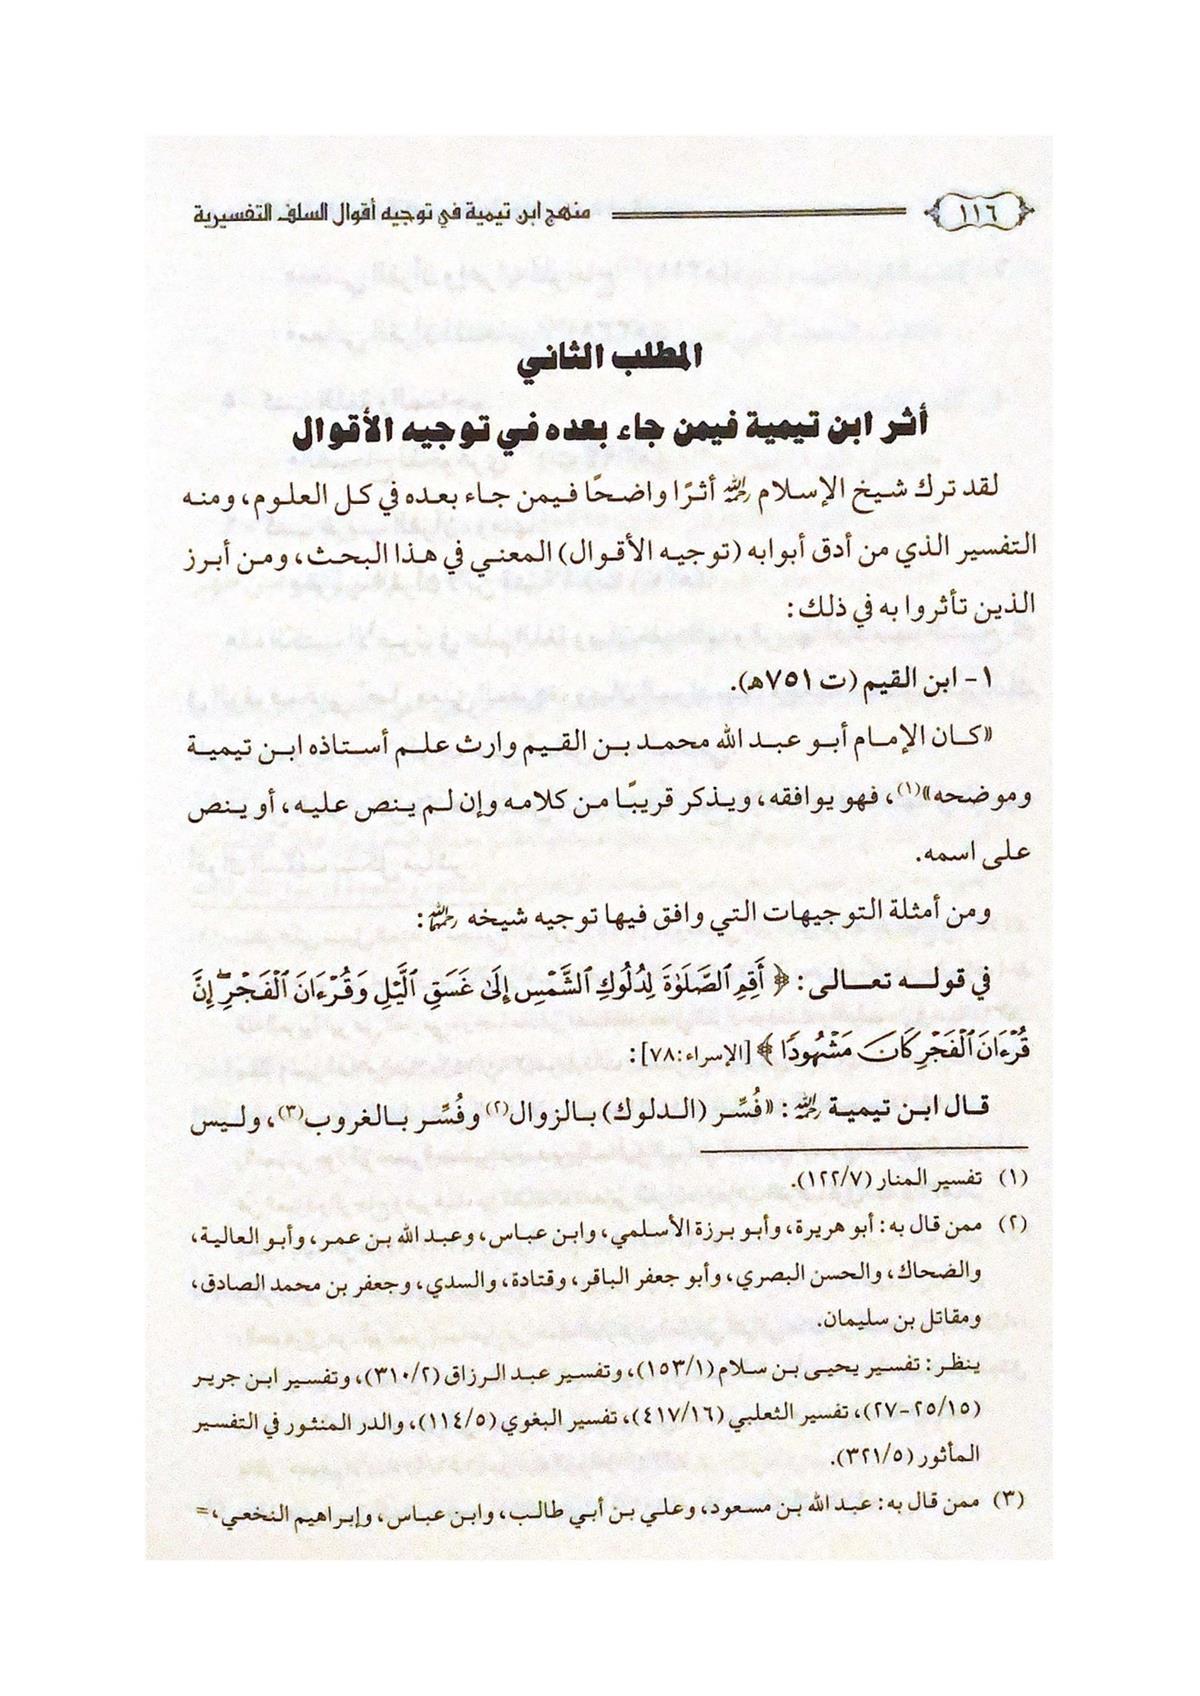 ١١٦ منهج ابن تيمية في توجيه أقوال السلف التفسيرية
المطلب الثاني
أثر ابن تيمية فيمن جاء بعده في توجيه الأقوال
لقد ترك شيخ الإسلام رحمه الله أثرًا واضحًا فيمن جاء بعده في كل العلوم، ومنه
التفسير الذي من أدق أبوابه (توجيه الأقوال) المعني في هذا البحث، ومن أبرز
الذين تأثروا به في ذلك:
١- ابن القيم (ت ٧٥١هـ).
«كان الإمام أبو عبد الله محمد بن القيم وارث علم أستاذه ابن تيمية
وموضحه»(١)، فهو يوافقه، ويذكر قريبًا من كلامه وإن لم ينص عليه، أو ينص
على اسمه.
ومن أمثلة التوجيهات التي وافق فيها توجيه شيخه رحمهما الله:
في قوله تعالى: ﴿أَقِمِ ٱلصَّلَوٰةَ لِدُلُوكِ ٱلشَّمۡسِ إِلَىٰ غَسَقِ ٱلَّيۡلِ وَقُرۡءَانَ ٱلۡفَجۡرِۖ إِنَّ
قُرۡءَانَ ٱلۡفَجۡرِ كَانَ مَشۡهُودٗا﴾ [الإسراء:٧٨]:
قال ابن تيمية رحمه الله: «فُسِّر (الدلوك) بالزوال(٢) وفُسِّر بالغروب(٣)، وليس
(١) تفسير المنار (١٢٢/٧).
(٢) ممن قال به: أبو هريرة، وأبو برزة الأسلمي، وابن عباس، وعبد الله بن عمر، وأبو العالية،
والضحاك، والحسن البصري، وأبو جعفر الباقر، وقتادة، والسدي، وجعفر بن محمد الصادق،
ومقاتل بن سليمان.
ينظر: تفسير يحيى بن سلام (١٥٣/١)، وتفسير عبد الرزاق (٣١٠/٢)، وتفسير ابن جرير
(٢٥/١٥-٢٧)، تفسير الثعلبي (٤١٧/١٦)، تفسير البغوي (١١٤/٥)، والدر المنثور في التفسير
المأثور (٣٢١/٥).
(٣) ممن قال به: عبد الله بن مسعود، وعلي بن أبي طالب، وابن عباس، وإبراهيم النخعي، =